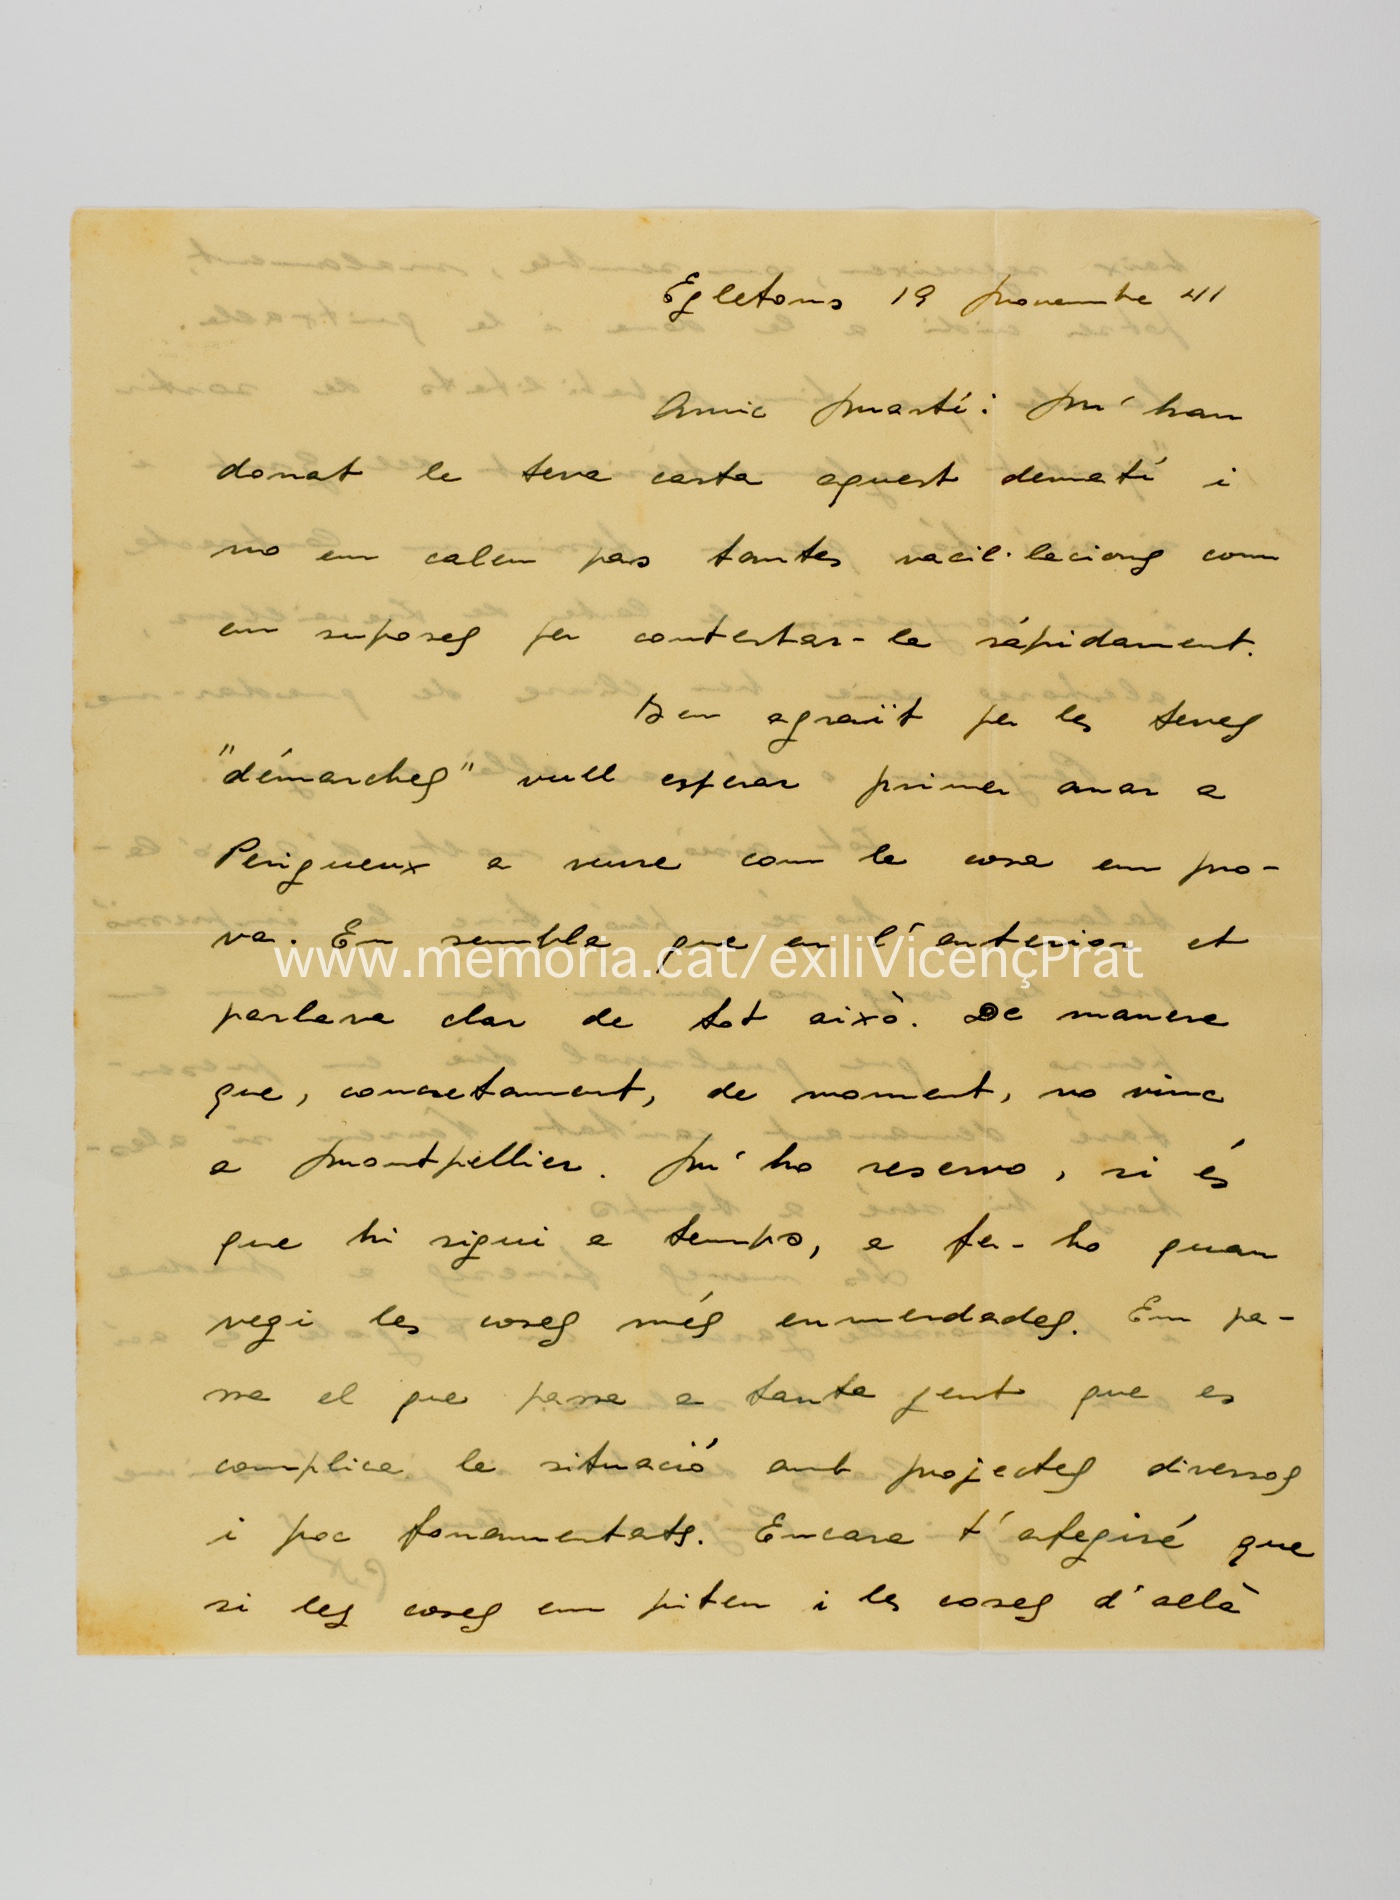 Egletons 19 Novembre 41
Amic Martí: M'han
donat la teva carta aquest dematí i
no em calen pas tantes vacil·lacions com
em suposes per contestar-la ràpidament.
Ben agraït per les teves
"démarches" vull esperar primer anar a
Perigueux a veure com la cosa em pro-
va. Em sembla que en l'anterior et
parlava clar de tot això. De manera
que, concretament, de moment, no vinc
a Montpellier. M'ho reservo, si és
que hi sigui a temps, a fer-ho quan
vegi les coses més enmerdades. Em pa-
ssa el que passa a tanta gent que es
complica la situació amb projectes diversos
i poc fonamentats. Encara t'afegiré que
si les coses em piten i les coses d'allà
www.memoria.cat/exiliVicençPrat